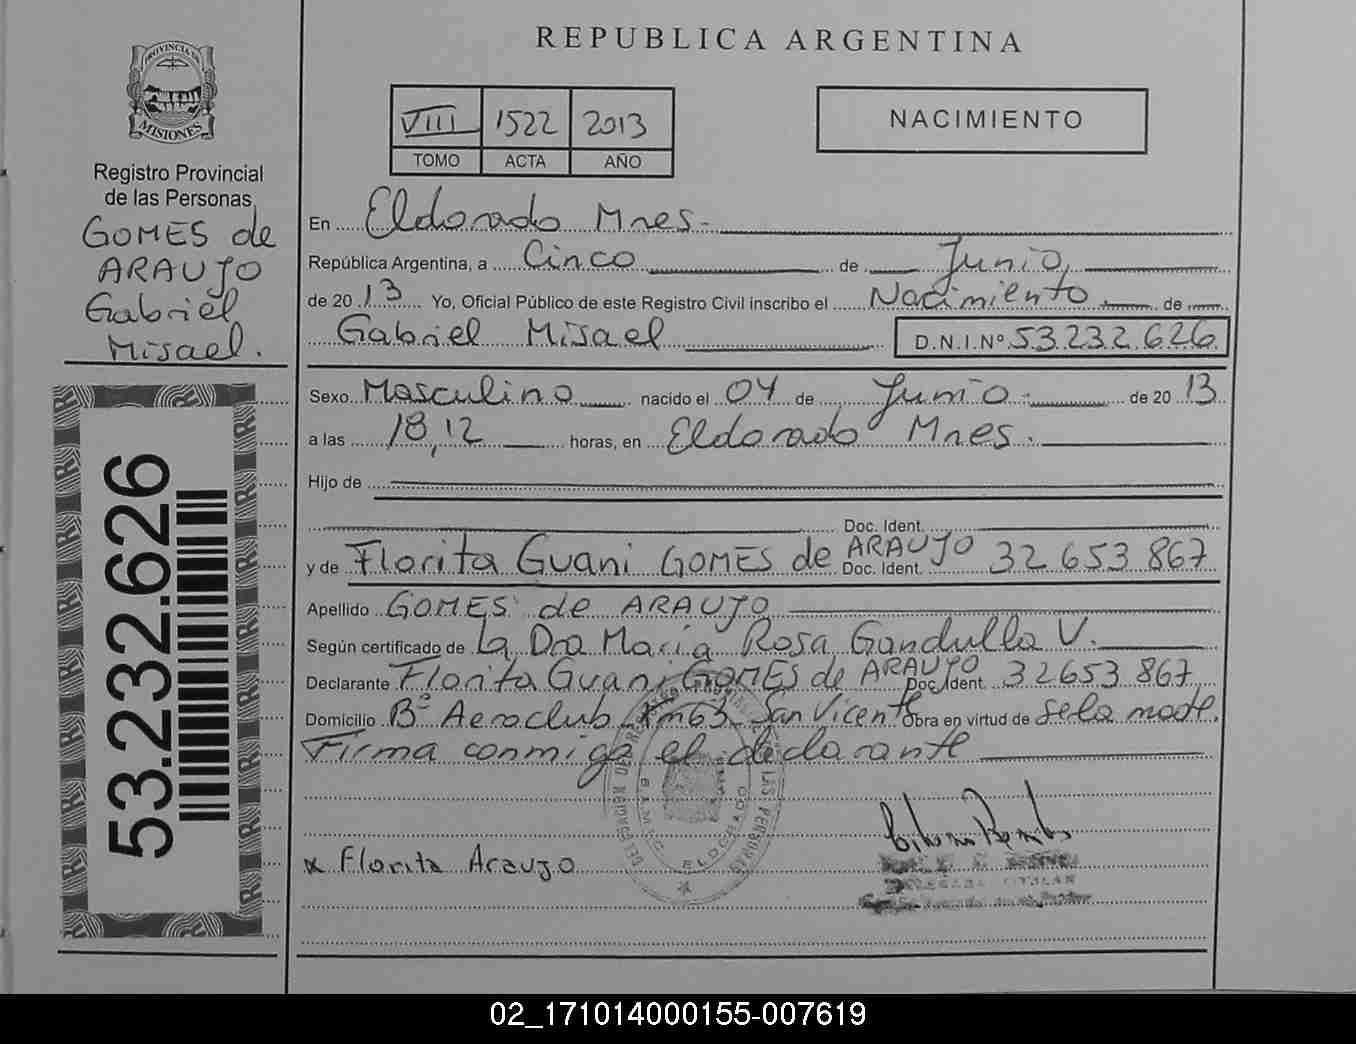 REPUBLICA ARGENTINA
PROVINCIA DE
MISIONES
Registro Provincial
de las Personas
GOMES de
ARAUJO
Gabriel
Misael.
53.232.626
VIII 1522 2013
TOMO ACTA AÑO
NACIMIENTO
En Eldorado Mnes.
República Argentina, a Cinco de Junio,
de 2013 Yo, Oficial Público de este Registro Civil inscribo el Nacimiento de
Gabriel Misael D.N.I.Nº 53.232.626
Sexo Masculino nacido el 04 de Junio de 2013
a las 18,12 horas, en Eldorado Mnes.
Hijo de
Doc. Ident.
y de Florita Guani GOMES de ARAUJO Doc. Ident. 32653867
Apellido GOMES de ARAUJO
Según certificado de La Dra Maria Rosa Gandulla V.
Declarante Florita Guani GOMES de ARAUJO Doc. Ident. 32653867
Domicilio Bº Aeroclub Km63 San Vicente Obra en virtud de
Firma conmigo el declarante
x Florita Araujo
02_171014000155-007619